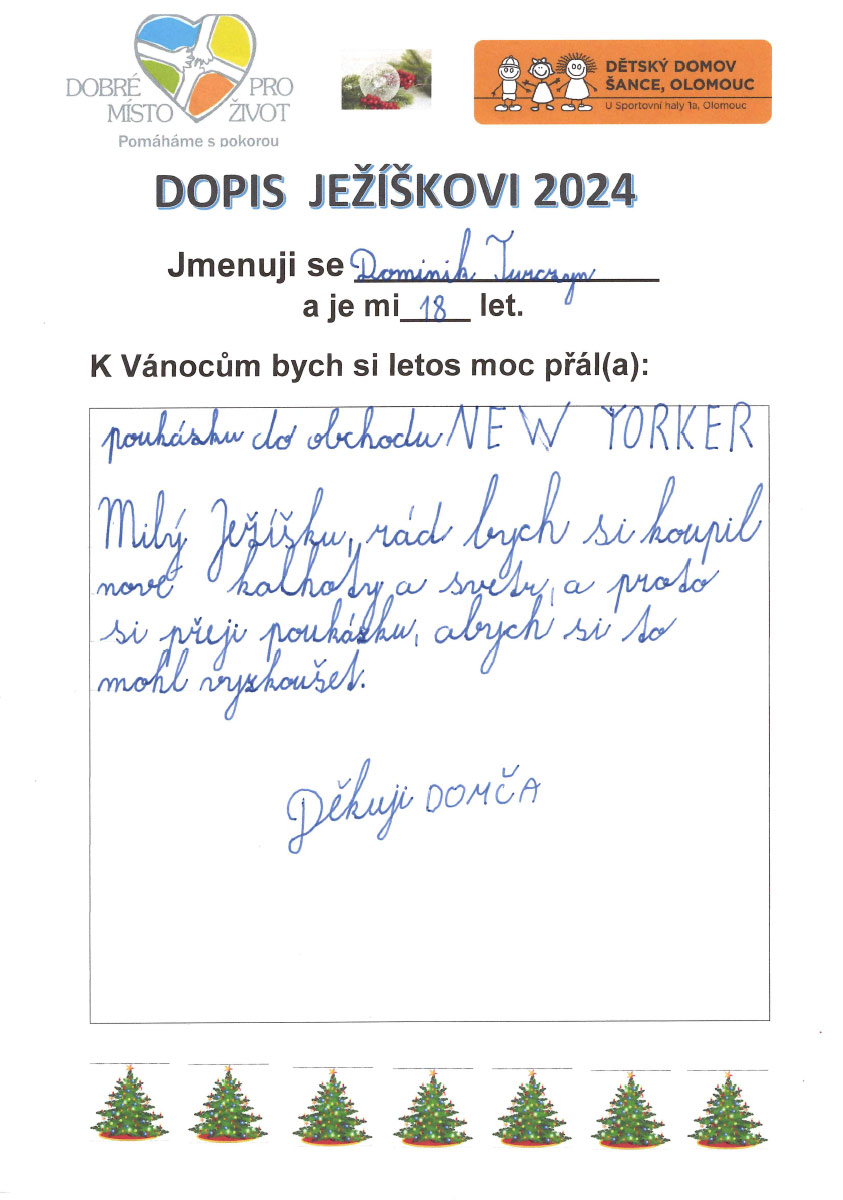 DOBRÉ PRO
MÍSTO ŽIVOT
Pomáháme s pokorou
DĚTSKÝ DOMOV
ŠANCE, OLOMOUC
U Sportovní haly 1a, Olomouc
DOPIS JEŽÍŠKOVI 2024
Jmenuji se Dominik Turczyn
a je mi 18 let.
K Vánocům bych si letos moc přál(a):
poukázku do obchodu NEW YORKER
Milý Ježíšku, rád bych si koupil
nové kalhoty a svetr, a proto
si přeji poukázku, abych si to
mohl vyzkoušet.
Děkuji DOMČA